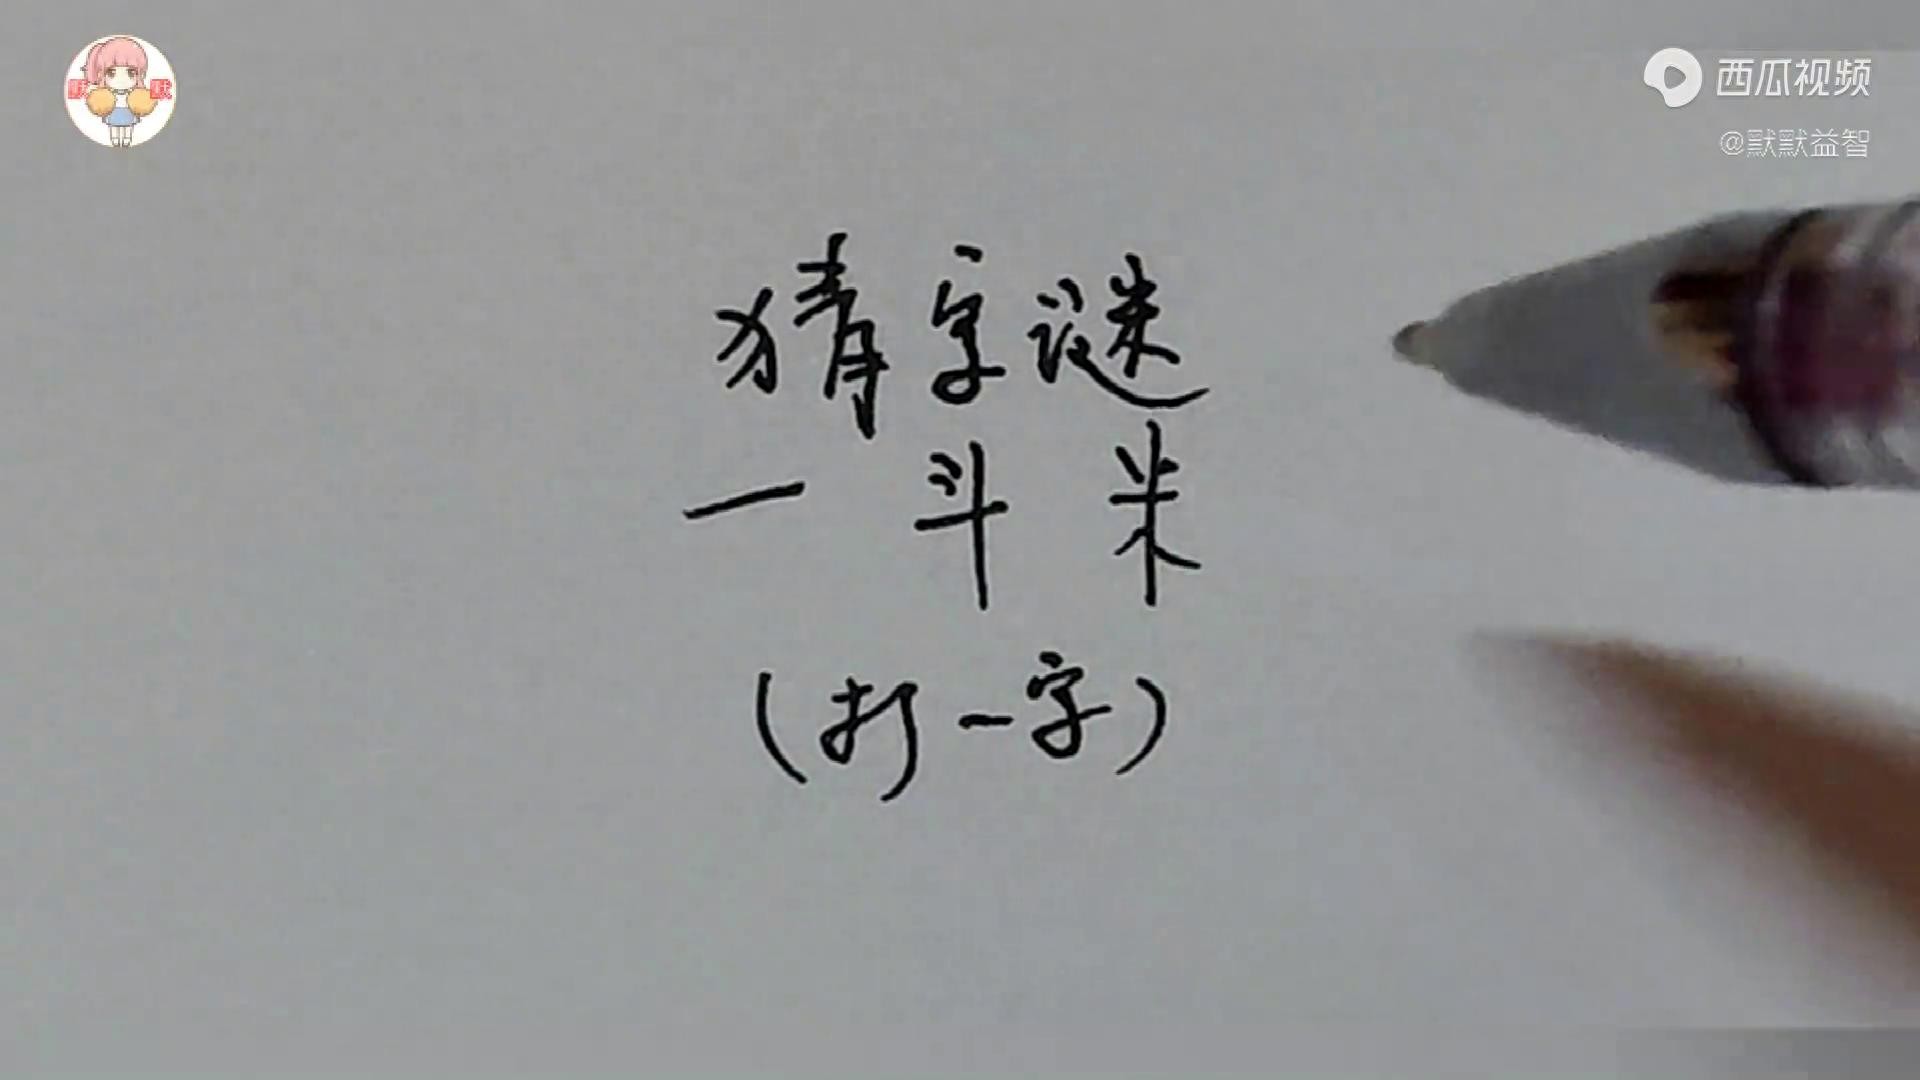 默 默
西瓜视频
@默默益智
猜字谜
一斗米
(打一字)